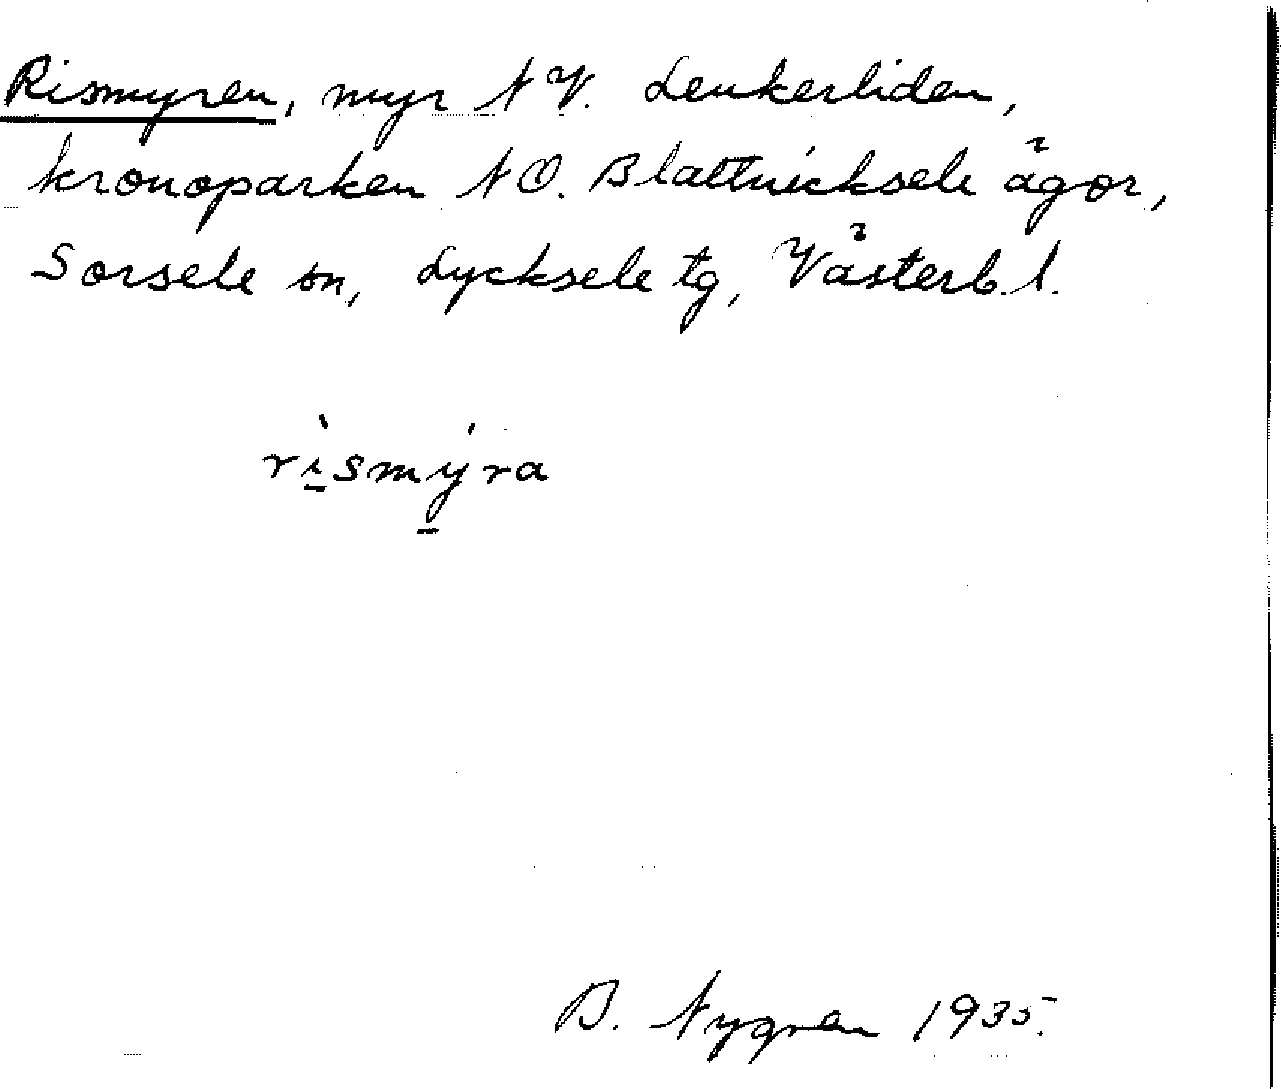 Rismyren, myr NV. Leukerliden,
kronoparken NO. Blattnicksele ägor,
Sorsele sn, Lycksele tg, Västerb. l.
rìsmýra
B. Nygren 1935.